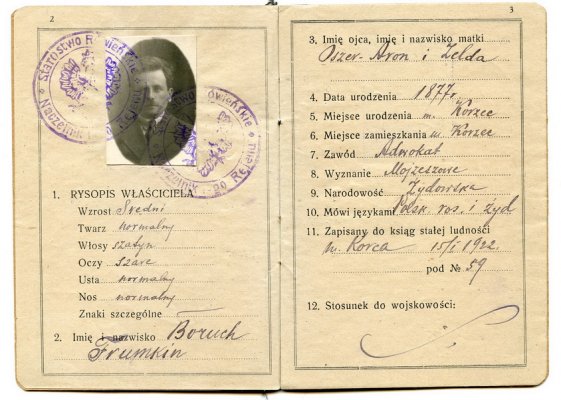 2
Starostwo Rówieńskie
1. RYSOPIS WŁAŚCICIELA:
Wzrost Średni
Twarz normalny
Włosy szatyn
Oczy szare
Usta normalny
Nos normalny
Znaki szczególne —
2. Imię i nazwisko Boruch
Frumkin
3
3. Imię ojca, imię i nazwisko matki
Oszer-Aron i Zelda
4. Data urodzenia 1877 r
5. Miejsce urodzenia m. Korzec
6. Miejsce zamieszkania m Korzec
7. Zawód Adwokat
8. Wyznanie Mojżeszowe
9. Narodowość Żydowska
10. Mówi językami Polsk. ros. i żyd
11. Zapisany do ksiąg stałej ludności
m. Korca 15/I 1922
pod № 59
12. Stosunek do wojskowości: